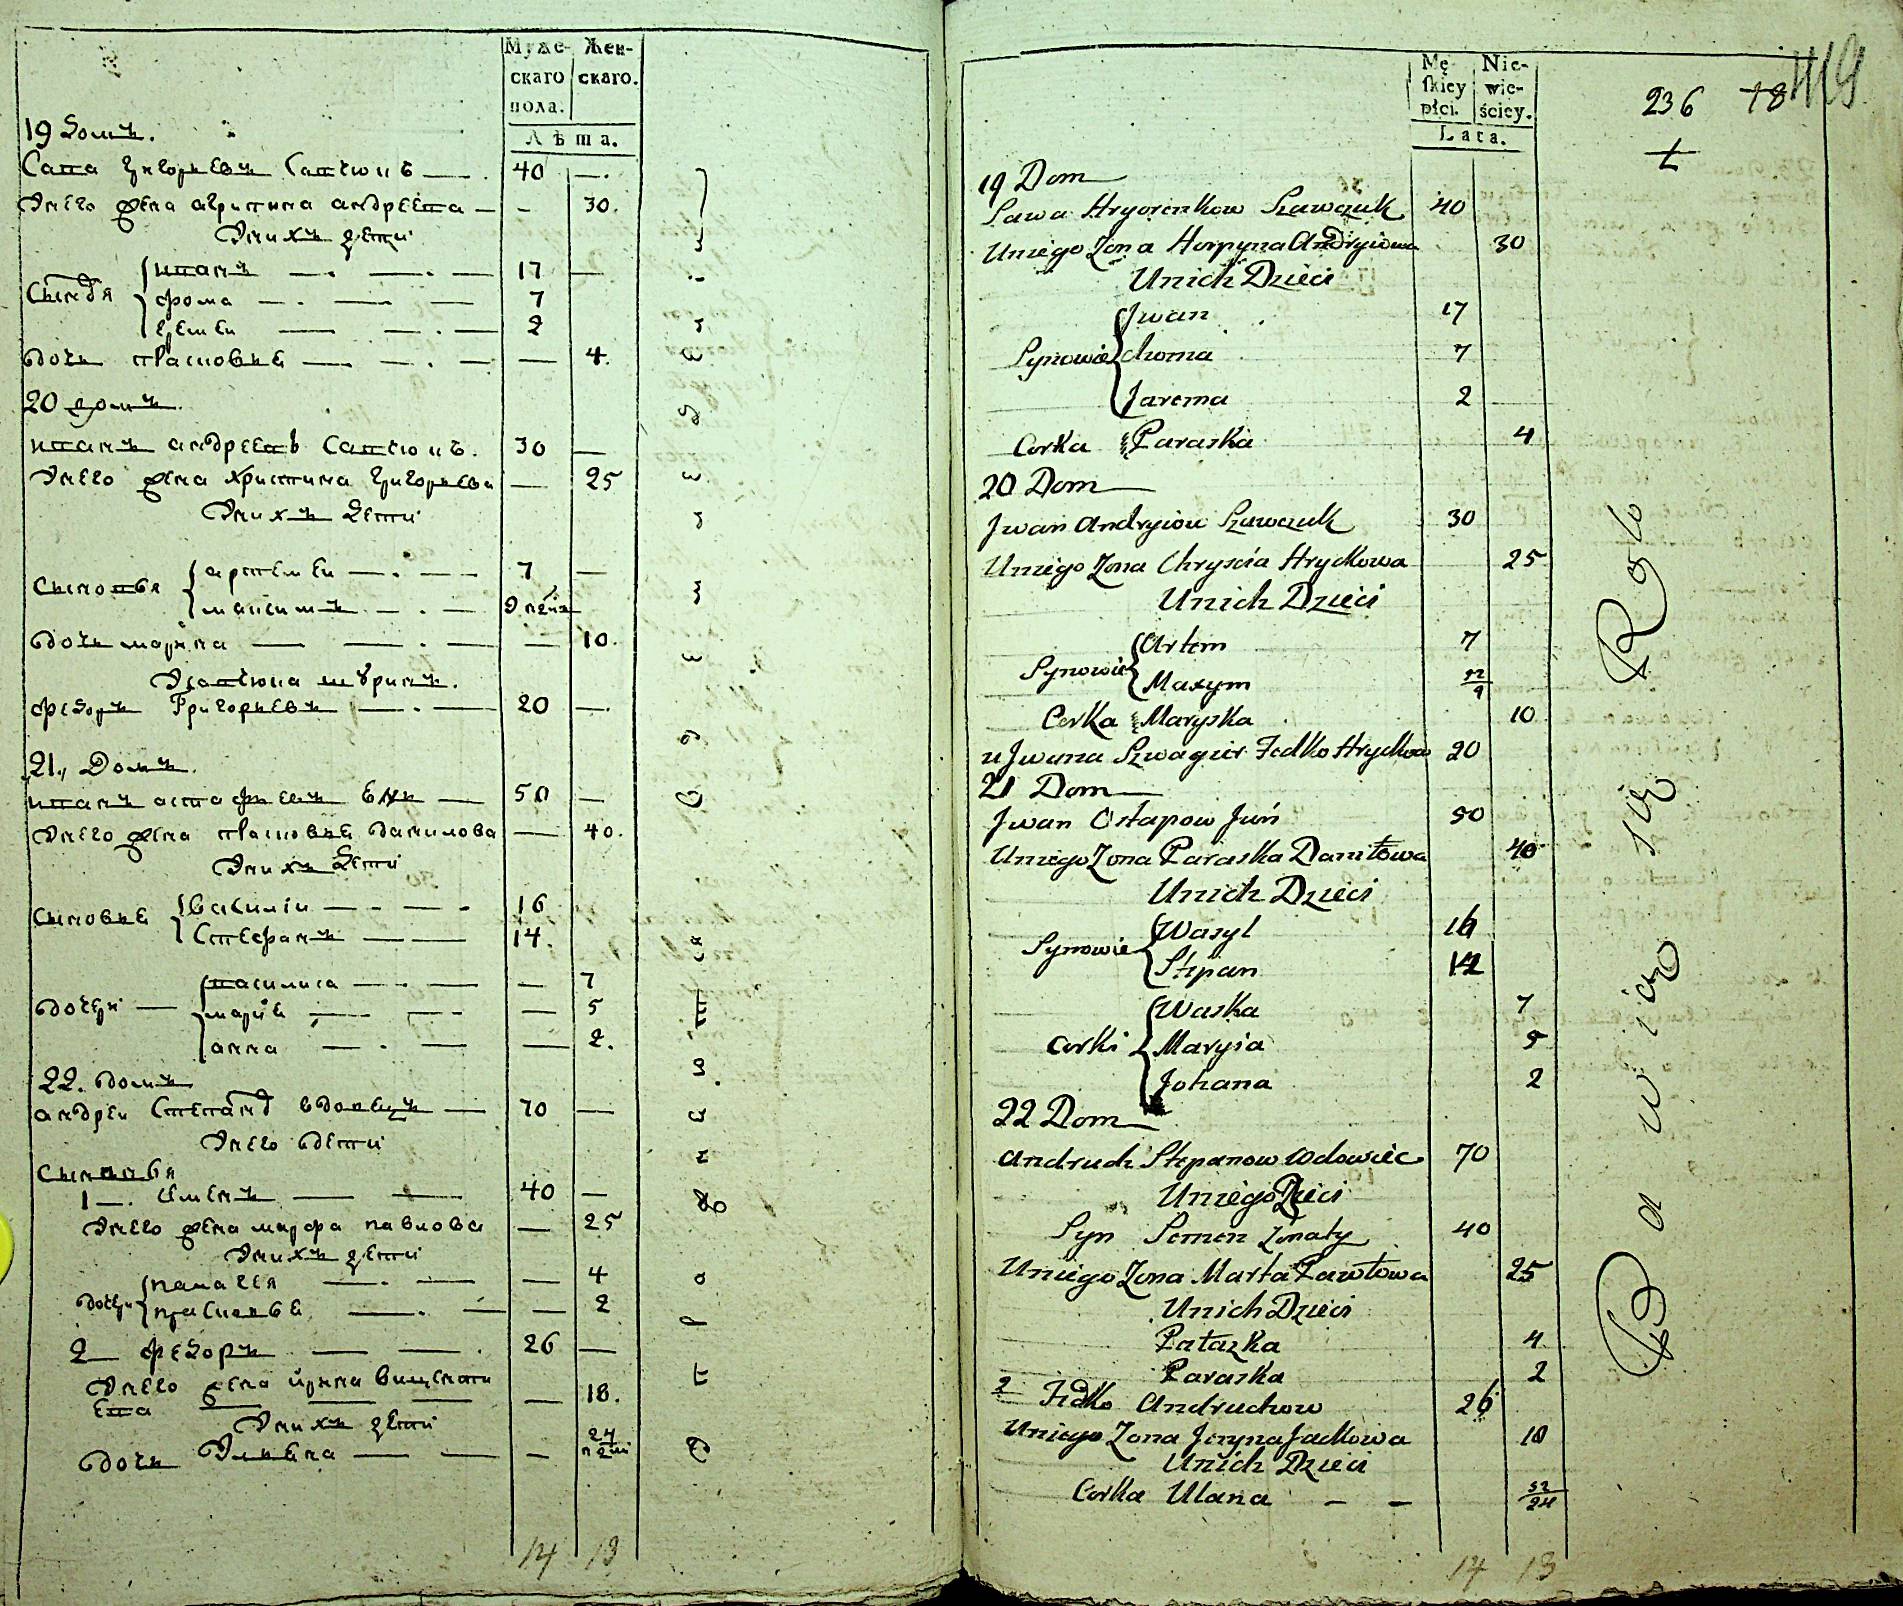 Муже- Жен-
скаго скаго.
пола.
Лѣта.
19 Домъ.
Сава Григорьевъ Савчюкъ 40
Унего жена агрипина андреева 30.
Унихъ дети
иванъ 17
Сыновья фома 7
еремеи 2
дочь прасковье 4.
20 домъ.
иванъ андреевъ Савчюкъ. 30
Унего жена христина григорьева 25
Унихъ дети
Сыновья артемеи 7
максимъ
дочь марина 10.
Уивана шуринъ.
федоръ Григорьевъ 20
21. Домъ.
иванъ астафьевъ 50
Унего жена прасковье данилова 40.
Унихъ дети
Сыновье василiи 16
Стефанъ 14.
василиса 7
дочери марiе 5
анна 2.
22. домъ
андреи Степановъ вдовецъ 70
Унего дети
Сыновья
1 семенъ 40
Унего жена марфа павлова 25
Унихъ дети
дочери палагея 4
прасковье 2
2 федоръ 26
Унего жена ирина
ева 18.
Унихъ дети
дочь Ульяна 24
14 13
Mę- Nie-
skiey wie-
płci. ściey.
Lata.
236 78 119
19 Dom
Sawa Hryorenkow Szawczuk 40
Uniego Zona Horpyna Andryiowa 30
Unich Dzieci
Jwan 17
Synowie choma 7
Jarema 2
Corka Paraska 4
20 Dom
Jwan Andryiow Szawczuk 30
Uniego Zona Chryscia Hryckowa 25
Unich Dzieci
Artem 7
Synowie Maxym
Corka Maryska 10
u Jwana Szwagier Fedko Hryckow 20
21 Dom
Jwan Ostapow Juń 50
Uniego Zona Paraska Daniłowa 40
Unich Dzieci
Wasyl 16
Synowie Stepan 14
Waska 7
Corki Marysia 5
Johana 2
22 Dom
Andruch Stepanow Wdowiec 70
Uniego Dzieci
Syn Semen Zonaty 40
Uniego Zona Marta Pawłowa 25
Unich Dzieci
Pałazka 4
Paraska 2
2 Fedko Andruchow 26
Uniego Zona Jeryna Jackowa 18
Unich Dzieci
Corka Ulana
14 13